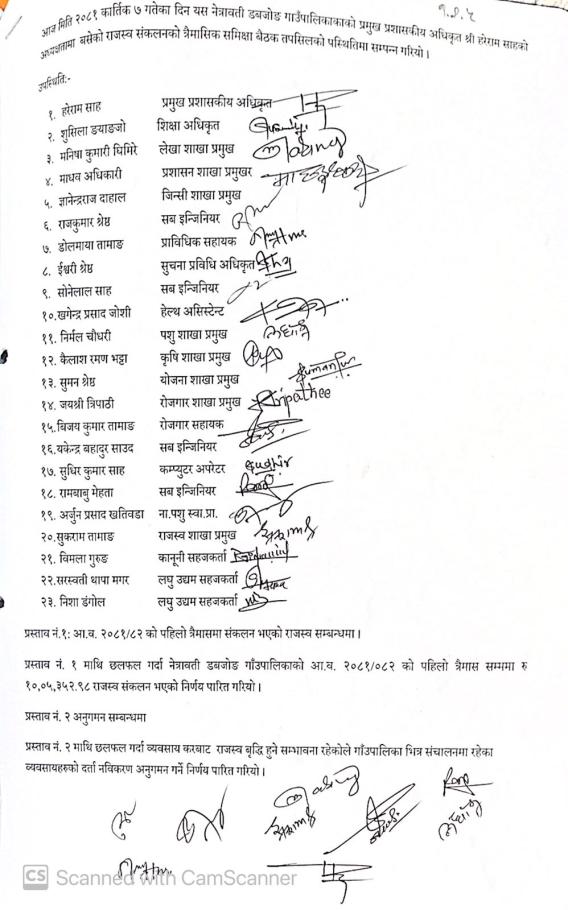 १.९.५
आज मिति २०८१ कार्तिक ७ गतेका दिन यस नेत्रावती डबजोङ गाउँपालिकाकाको प्रमुख प्रशासकीय अधिकृत श्री हरेराम साहको
अध्यक्षतामा बसेको राजस्व संकलनको त्रैमासिक समिक्षा बैठक तपसिलको पस्थितिमा सम्पन्न गरियो ।
उपस्थिति:-
१. हरेराम साह प्रमुख प्रशासकीय अधिकृत
२. शुसिला डयाङजो शिक्षा अधिकृत
३. मनिषा कुमारी घिमिरे लेखा शाखा प्रमुख
४. माधव अधिकारी प्रशासन शाखा प्रमुखर
५. ज्ञानेन्द्रराज दाहाल जिन्सी शाखा प्रमुख
६. राजकुमार श्रेष्ठ सब इन्जिनियर
७. डोलमाया तामाङ प्राविधिक सहायक
८. ईश्वरी श्रेष्ठ सुचना प्रविधि अधिकृत
९. सोनेलाल साह सब इन्जिनियर
१०.खगेन्द्र प्रसाद जोशी हेल्थ असिस्टेन्ट
११. निर्मल चौधरी पशु शाखा प्रमुख
१२. कैलाश रमण भट्टा कृषि शाखा प्रमुख
१३. सुमन श्रेष्ठ योजना शाखा प्रमुख
१४. जयश्री त्रिपाठी रोजगार शाखा प्रमुख Tripathee
१५.बिजय कुमार तामाङ रोजगार सहायक
१६.यकेन्द्र बहादुर साउद सब इन्जिनियर
१७. सुधिर कुमार साह कम्प्युटर अपरेटर Sudhir
१८. रामबाबु मेहता सब इन्जिनियर
१९. अर्जुन प्रसाद खतिवडा ना.पशु स्वा.प्रा.
२०.सुकराम तामाङ राजस्व शाखा प्रमुख
२१. विमला गुरुङ कानूनी सहजकर्ता
२२.सरस्वती थापा मगर लघु उद्यम सहजकर्ता
२३. निशा डंगोल लघु उद्यम सहजकर्ता
प्रस्ताव नं.१: आ.व. २०८१/८२ को पहिलो त्रैमासमा संकलन भएको राजस्व सम्बन्धमा ।
प्रस्ताव नं. १ माथि छलफल गर्दा नेत्रावती डबजोङ गाँउपालिकाको आ.व. २०८१/०८२ को पहिलो त्रैमास सम्ममा रु
१०,०५,३५२.९८ राजस्व संकलन भएको निर्णय पारित गरियो ।
प्रस्ताव नं. २ अनुगमन सम्बन्धमा
प्रस्ताव नं. २ माथि छलफल गर्दा व्यवसाय करबाट राजस्व बृद्धि हुने सम्भावना रहेकोले गाँउपालिका भित्र संचालनमा रहेका
व्यवसायहरुको दर्ता नविकरण अनुगमन गर्ने निर्णय पारित गरियो ।
CS Scanned with CamScanner